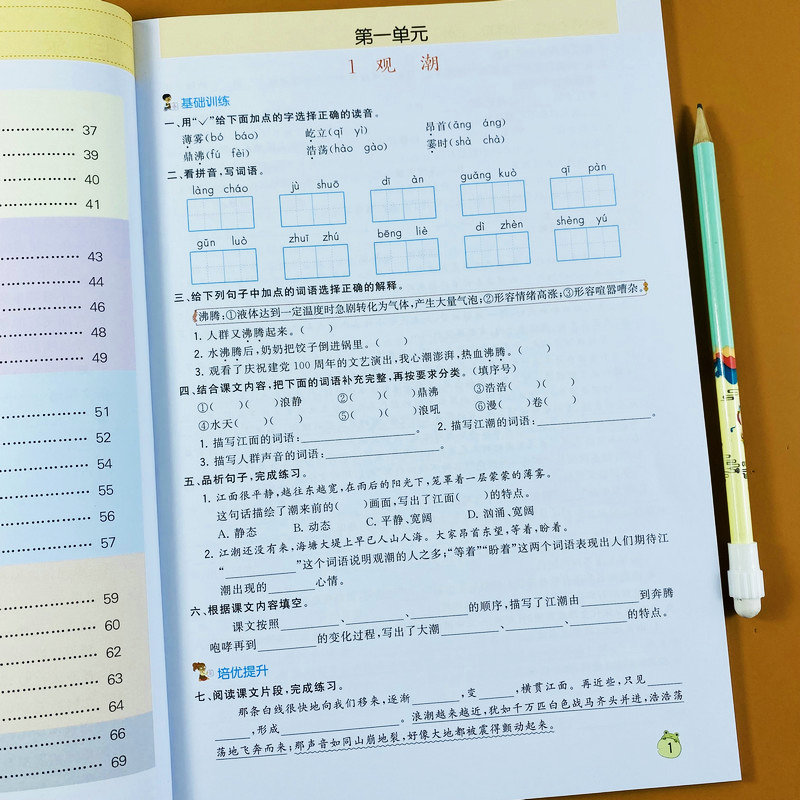 37
39
40
41
43
44
46
48
49
51
52
54
55
56
57
59
60
62
63
64
66
69
第一单元
1 观 潮
基础训练
一、用“✓”给下面加点的字选择正确的读音。
薄雾(bó báo) 屹立(qǐ yì) 昂首(āng áng)
鼎沸(fú fèi) 浩荡(hào gào) 霎时(shà chà)
二、看拼音，写词语。
làng cháo jù shuō dī àn guǎng kuò qī pàn
gǔn luò zhuī zhú bēng liè dì zhèn shèng yú
三、给下列句子中加点的词语选择正确的解释。
沸腾:①液体达到一定温度时急剧转化为气体,产生大量气泡;②形容情绪高涨;③形容喧嚣嘈杂。
1. 人群又沸腾起来。( )
2. 水沸腾后,奶奶把饺子倒进锅里。( )
3. 观看了庆祝建党 100 周年的文艺演出,我心潮澎湃,热血沸腾。( )
四、结合课文内容,把下面的词语补充完整,再按要求分类。(填序号)
①( )( )浪静 ②( )( )鼎沸 ③浩浩( )( )
④水天( )( ) ⑤( )( )浪吼 ⑥漫( )卷( )
1. 描写江面的词语:____________。 2. 描写江潮的词语:____________。
3. 描写人群声音的词语:____________。
五、品析句子,完成练习。
1. 江面很平静,越往东越宽,在雨后的阳光下,笼罩着一层蒙蒙的薄雾。
这句话描绘了潮来前的( )画面,写出了江面( )的特点。
A. 静态 B. 动态 C. 平静、宽阔 D. 汹涌、宽阔
2. 江潮还没有来,海塘大堤上早已人山人海。大家昂首东望,等着,盼着。
“________”这个词语说明观潮的人之多;“等着”“盼着”这两个词语表现出人们期待江
潮出现的______心情。
六、根据课文内容填空。
课文按照________、________、________的顺序,描写了江潮由________到奔腾
咆哮再到________的变化过程,写出了大潮________、________、________的特点。
培优提升
七、阅读课文片段,完成练习。
那条白线很快地向我们移来,逐渐______,变____,横贯江面。再近些,只见____
____,形成____________。浪潮越来越近,犹如千万匹白色战马齐头并进,浩浩荡
荡地飞奔而来;那声音如同山崩地裂,好像大地都被震得颤动起来。
1